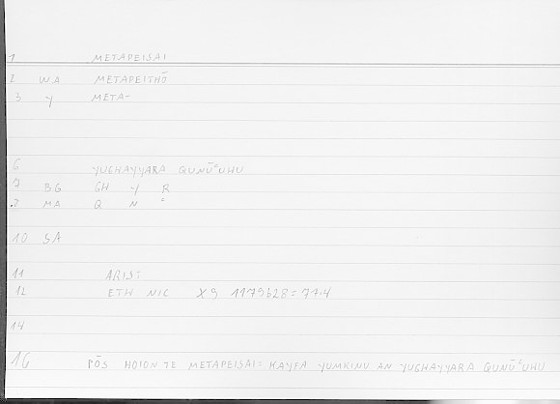 1 METAPEISAI
2 WA METAPEITHŌ
3 Y META-
6 YUGHAYYARA QUNŪʿUHU
7 BG GH Y R
8 MA Q N ʿ
10 SA
11 ARIS:
12 ETH NIC X 9 1179b28 = 77.4
14
16 PŌS HOION TE METAPEISAI: KAYFA YUMKINU AN YUGHAYYARA QUNŪʿUHU